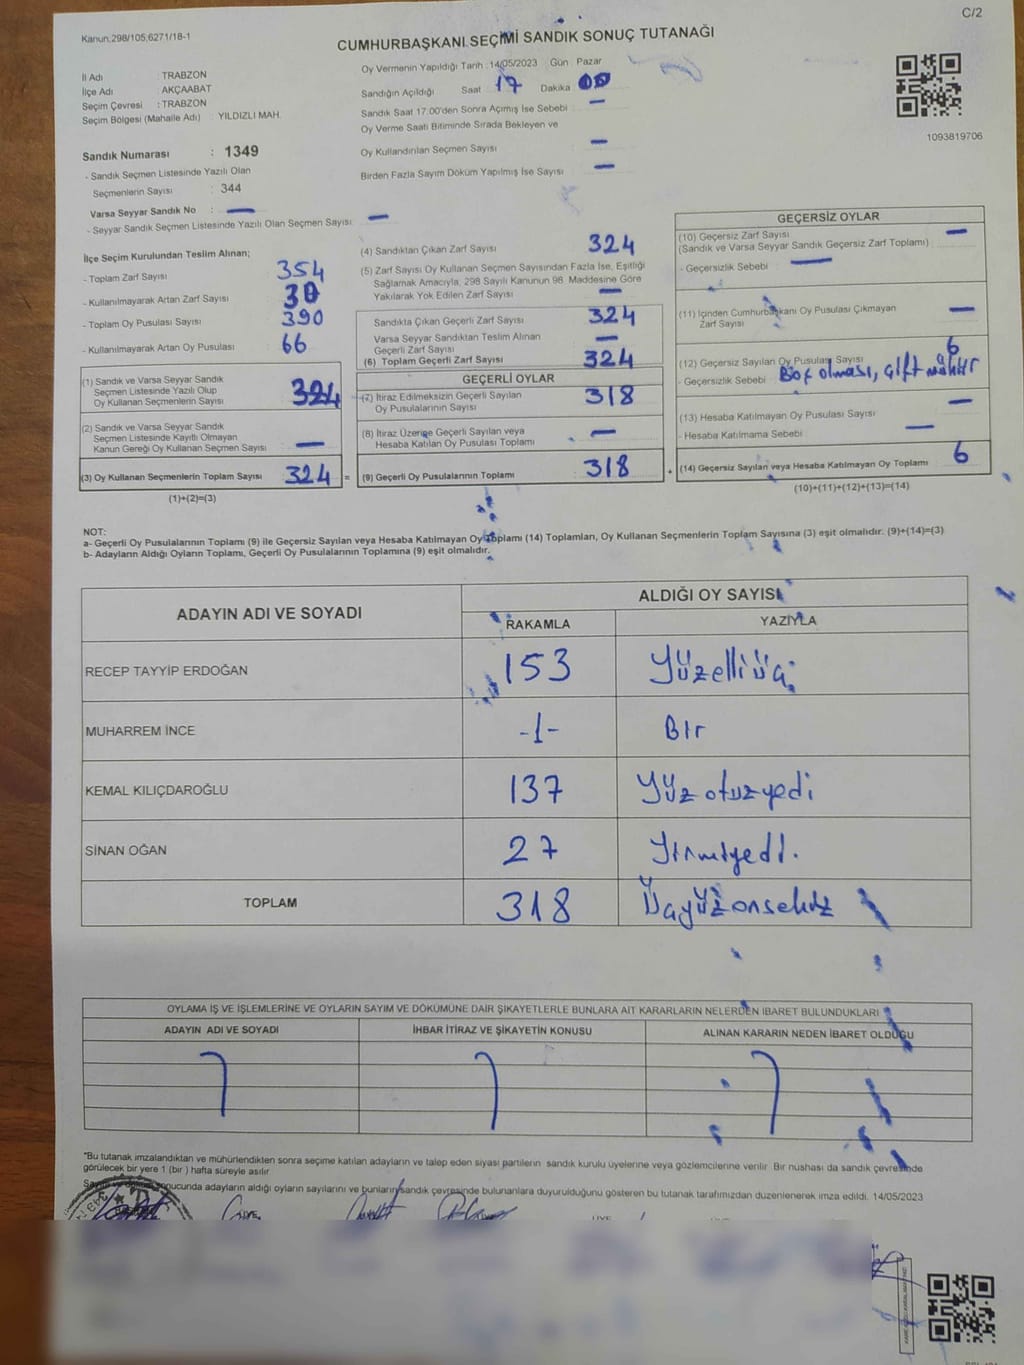 C/2
Kanun:298/105,6271/18-1
CUMHURBAŞKANI SEÇİMİ SANDIK SONUÇ TUTANAĞI
İl Adı : TRABZON
İlçe Adı : AKÇAABAT
Seçim Çevresi : TRABZON
Seçim Bölgesi (Mahalle Adı) : YILDIZLI MAH.
Oy Vermenin Yapıldığı Tarih : 14/05/2023 Gün Pazar
Sandığın Açıldığı Saat 17 Dakika 00
Sandık Saat 17.00'den Sonra Açmış İse Sebebi —
Oy Verme Saati Bitiminde Sırada Bekleyen ve
Oy Kullandırılan Seçmen Sayısı —
Birden Fazla Sayım Döküm Yapılmış İse Sayısı —
1093819706
Sandık Numarası : 1349
- Sandık Seçmen Listesinde Yazılı Olan
Seçmenlerin Sayısı : 344
Varsa Seyyar Sandık No : —
- Seyyar Sandık Seçmen Listesinde Yazılı Olan Seçmen Sayısı: —
İlçe Seçim Kurulundan Teslim Alınan;
- Toplam Zarf Sayısı 354
- Kullanılmayarak Artan Zarf Sayısı 30
- Toplam Oy Pusulası Sayısı 390
- Kullanılmayarak Artan Oy Pusulası 66
(1) Sandık ve Varsa Seyyar Sandık
Seçmen Listesinde Yazılı Olup
Oy Kullanan Seçmenlerin Sayısı 324
(2) Sandık ve Varsa Seyyar Sandık
Seçmen Listesinde Kayıtlı Olmayan
Kanun Gereği Oy Kullanan Seçmen Sayısı —
(3) Oy Kullanan Seçmenlerin Toplam Sayısı 324 =
(1)+(2)=(3)
(4) Sandıktan Çıkan Zarf Sayısı 324
(5) Zarf Sayısı Oy Kullanan Seçmen Sayısından Fazla İse, Eşitliği
Sağlamak Amacıyla, 298 Sayılı Kanunun 98. Maddesine Göre
Yakılarak Yok Edilen Zarf Sayısı —
Sandıkta Çıkan Geçerli Zarf Sayısı 324
Varsa Seyyar Sandıktan Teslim Alınan
Geçerli Zarf Sayısı —
(6) Toplam Geçerli Zarf Sayısı 324
GEÇERLİ OYLAR
(7) İtiraz Edilmeksizin Geçerli Sayılan
Oy Pusulalarının Sayısı 318
(8) İtiraz Üzerine Geçerli Sayılan veya
Hesaba Katılan Oy Pusulası Toplamı —
(9) Geçerli Oy Pusulalarının Toplamı 318 +
GEÇERSİZ OYLAR
(10) Geçersiz Zarf Sayısı —
(Sandık ve Varsa Seyyar Sandık Geçersiz Zarf Toplamı)
- Geçersizlik Sebebi —
(11) İçinden Cumhurbaşkanı Oy Pusulası Çıkmayan
Zarf Sayısı —
(12) Geçersiz Sayılan Oy Pusulası Sayısı 6
- Geçersizlik Sebebi Boş olması, çift mühür
(13) Hesaba Katılmayan Oy Pusulası Sayısı —
- Hesaba Katılmama Sebebi —
(14) Geçersiz Sayılan veya Hesaba Katılmayan Oy Toplamı 6
(10)+(11)+(12)+(13)=(14)
NOT:
a- Geçerli Oy Pusulalarının Toplamı (9) ile Geçersiz Sayılan veya Hesaba Katılmayan Oy Toplamı (14) Toplamları, Oy Kullanan Seçmenlerin Toplam Sayısına (3) eşit olmalıdır. (9)+(14)=(3)
b- Adayların Aldığı Oyların Toplamı, Geçerli Oy Pusulalarının Toplamına (9) eşit olmalıdır.
ADAYIN ADI VE SOYADI ALDIĞI OY SAYISI
RAKAMLA YAZIYLA
RECEP TAYYİP ERDOĞAN 153 Yüzelliüç
MUHARREM İNCE -1- Bir
KEMAL KILIÇDAROĞLU 137 Yüzotuzyedi
SİNAN OĞAN 27 Yirmiyedi.
TOPLAM 318 Üçyüzonsekiz
OYLAMA İŞ VE İŞLEMLERİNE VE OYLARIN SAYIM VE DÖKÜMÜNE DAİR ŞİKAYETLERLE BUNLARA AİT KARARLARIN NELERDEN İBARET BULUNDUKLARI
ADAYIN ADI VE SOYADI İHBAR İTİRAZ VE ŞİKAYETİN KONUSU ALINAN KARARIN NEDEN İBARET OLDUĞU
*Bu tutanak imzalandıktan ve mühürlendikten sonra seçime katılan adayların ve talep eden siyasi partilerin sandık kurulu üyelerine veya gözlemcilerine verilir. Bir nushası da sandık çevresinde
görülecek bir yere 1 (bir ) hafta süreyle asılır
Sayım ve döküm sonucunda adayların aldığı oyların sayılarını ve bunların sandık çevresinde bulunanlara duyurulduğunu gösteren bu tutanak tarafımızdan düzenlenerek imza edildi. 14/05/2023
ÜYE ÜYE